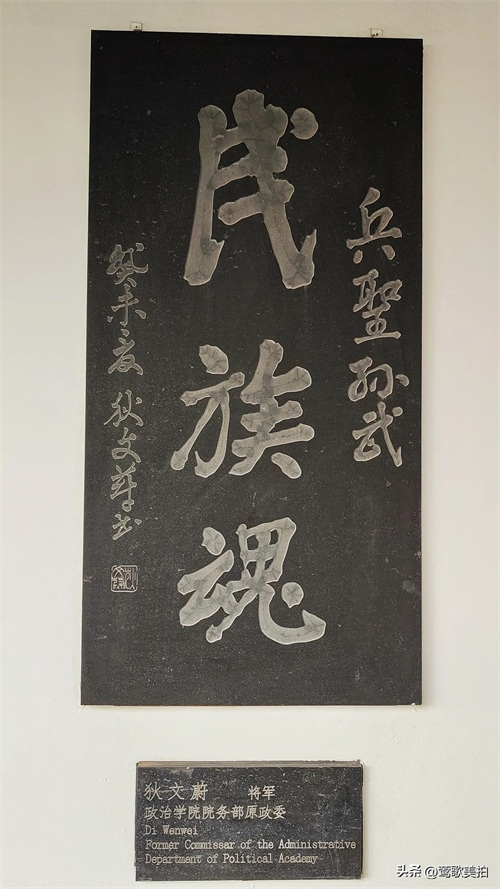 兵聖孙武
民族魂
癸未夏 狄文蔚书
狄文蔚 将军
政治学院院务部原政委
Di Wenwei
Former Commissar of the Administrative
Department of Political Academy
头条 @莺歌美拍